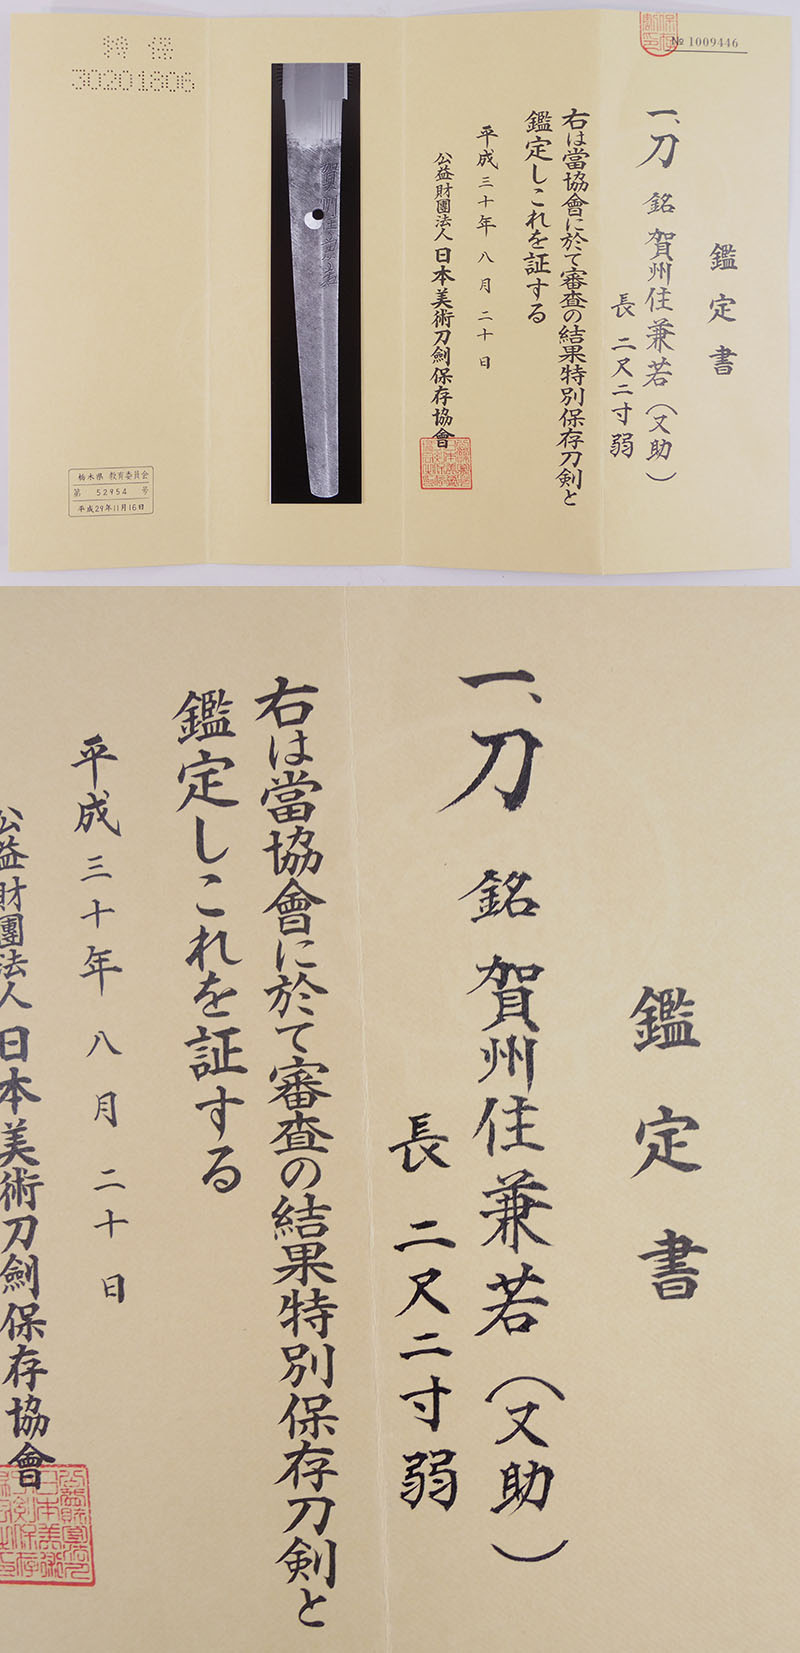 № 1009446
鑑定書
一、刀 銘 賀州住兼若（又助）
長 二尺二寸弱
右は當協會に於て審査の結果特別保存刀剣と
鑑定しこれを証する
平成三十年八月二十日
公益財團法人日本美術刀劍保存協會
賀州住兼若
特保
30201806
栃木県 教育委員会
第 52954 号
平成29年11月16日
鑑定書
一、刀 銘 賀州住兼若（又助）
長 二尺二寸弱
右は當協會に於て審査の結果特別保存刀剣と
鑑定しこれを証する
平成三十年八月二十日
公益財團法人日本美術刀劍保存協會